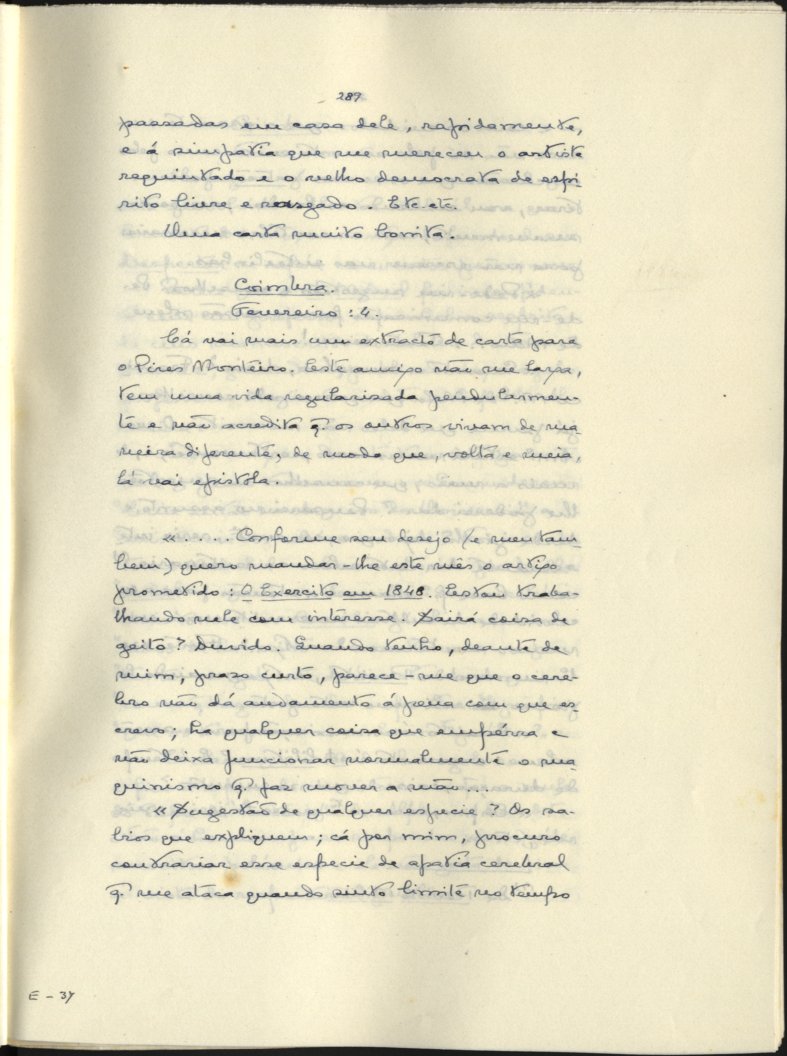 289
passadas em casa dele, rapidamente,
e á simpatia que me mereceu o artista
requintado e o velho democrata de espi-
rito livre e rasgado. Etc. etc.
Uma carta muito bonita.
Coimbra.
Fevereiro: 4.
Cá vai mais um extracto de carta para
o Pires Monteiro. Este amigo não me larga,
tem uma vida regularisada pendularmen-
te e não acredita q. os outros vivam de ma-
neira diferente, de modo que, volta e meia,
lá vai epistola.
«.... Conforme seu desejo (e meu tam-
bem) quero mandar-lhe este mês o artigo
prometido: O Exercito em 1848. Estou traba-
lhando nele com interesse. Sairá coisa de
geito? Duvido. Quando tenho, deante de
mim, praso curto, parece-me que o cere-
bro não dá andamento á pena com que es-
crevo; ha qualquer coisa que empérra e
não deixa funcionar normalmente o ma-
quinismo q. faz mover a mão...
« Sugestão de qualquer especie? Os sa-
bios que expliquem; cá por mim, procuro
contrariar esse especie de apatia cerebral
q. me ataca quando sinto limite no tempo
E - 37